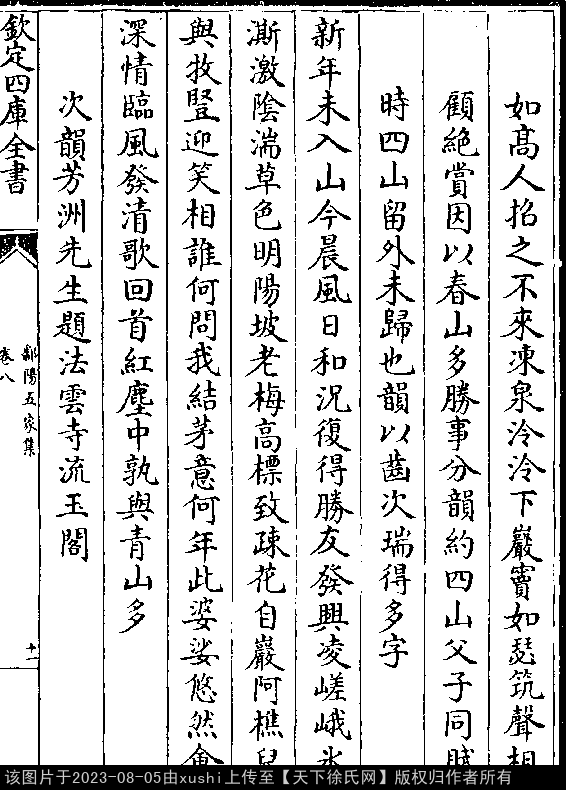 如髙人招之不來凍泉泠泠下巖竇如瑟筑聲相
顧絶賞因以春山多勝事分韻約四山父子同賦
時四山留外未歸也韻以齒次瑞得多字
新年未入山今晨風日和況復得勝友發興凌嵯峨氷
澌激陰湍草色明陽坡老梅高標致疎花自巖阿樵兒
與牧豎迎笑相誰何問我結茅意何年此婆娑悠然會
深情臨風發清歌回首紅塵中孰與青山多
次韻芳洲先生題法雲寺流玉閣
欽定四庫全書
鄱陽五家集
卷八
十一
该图片于2023-08-05由xushi上传至【天下徐氏网】版权归作者所有